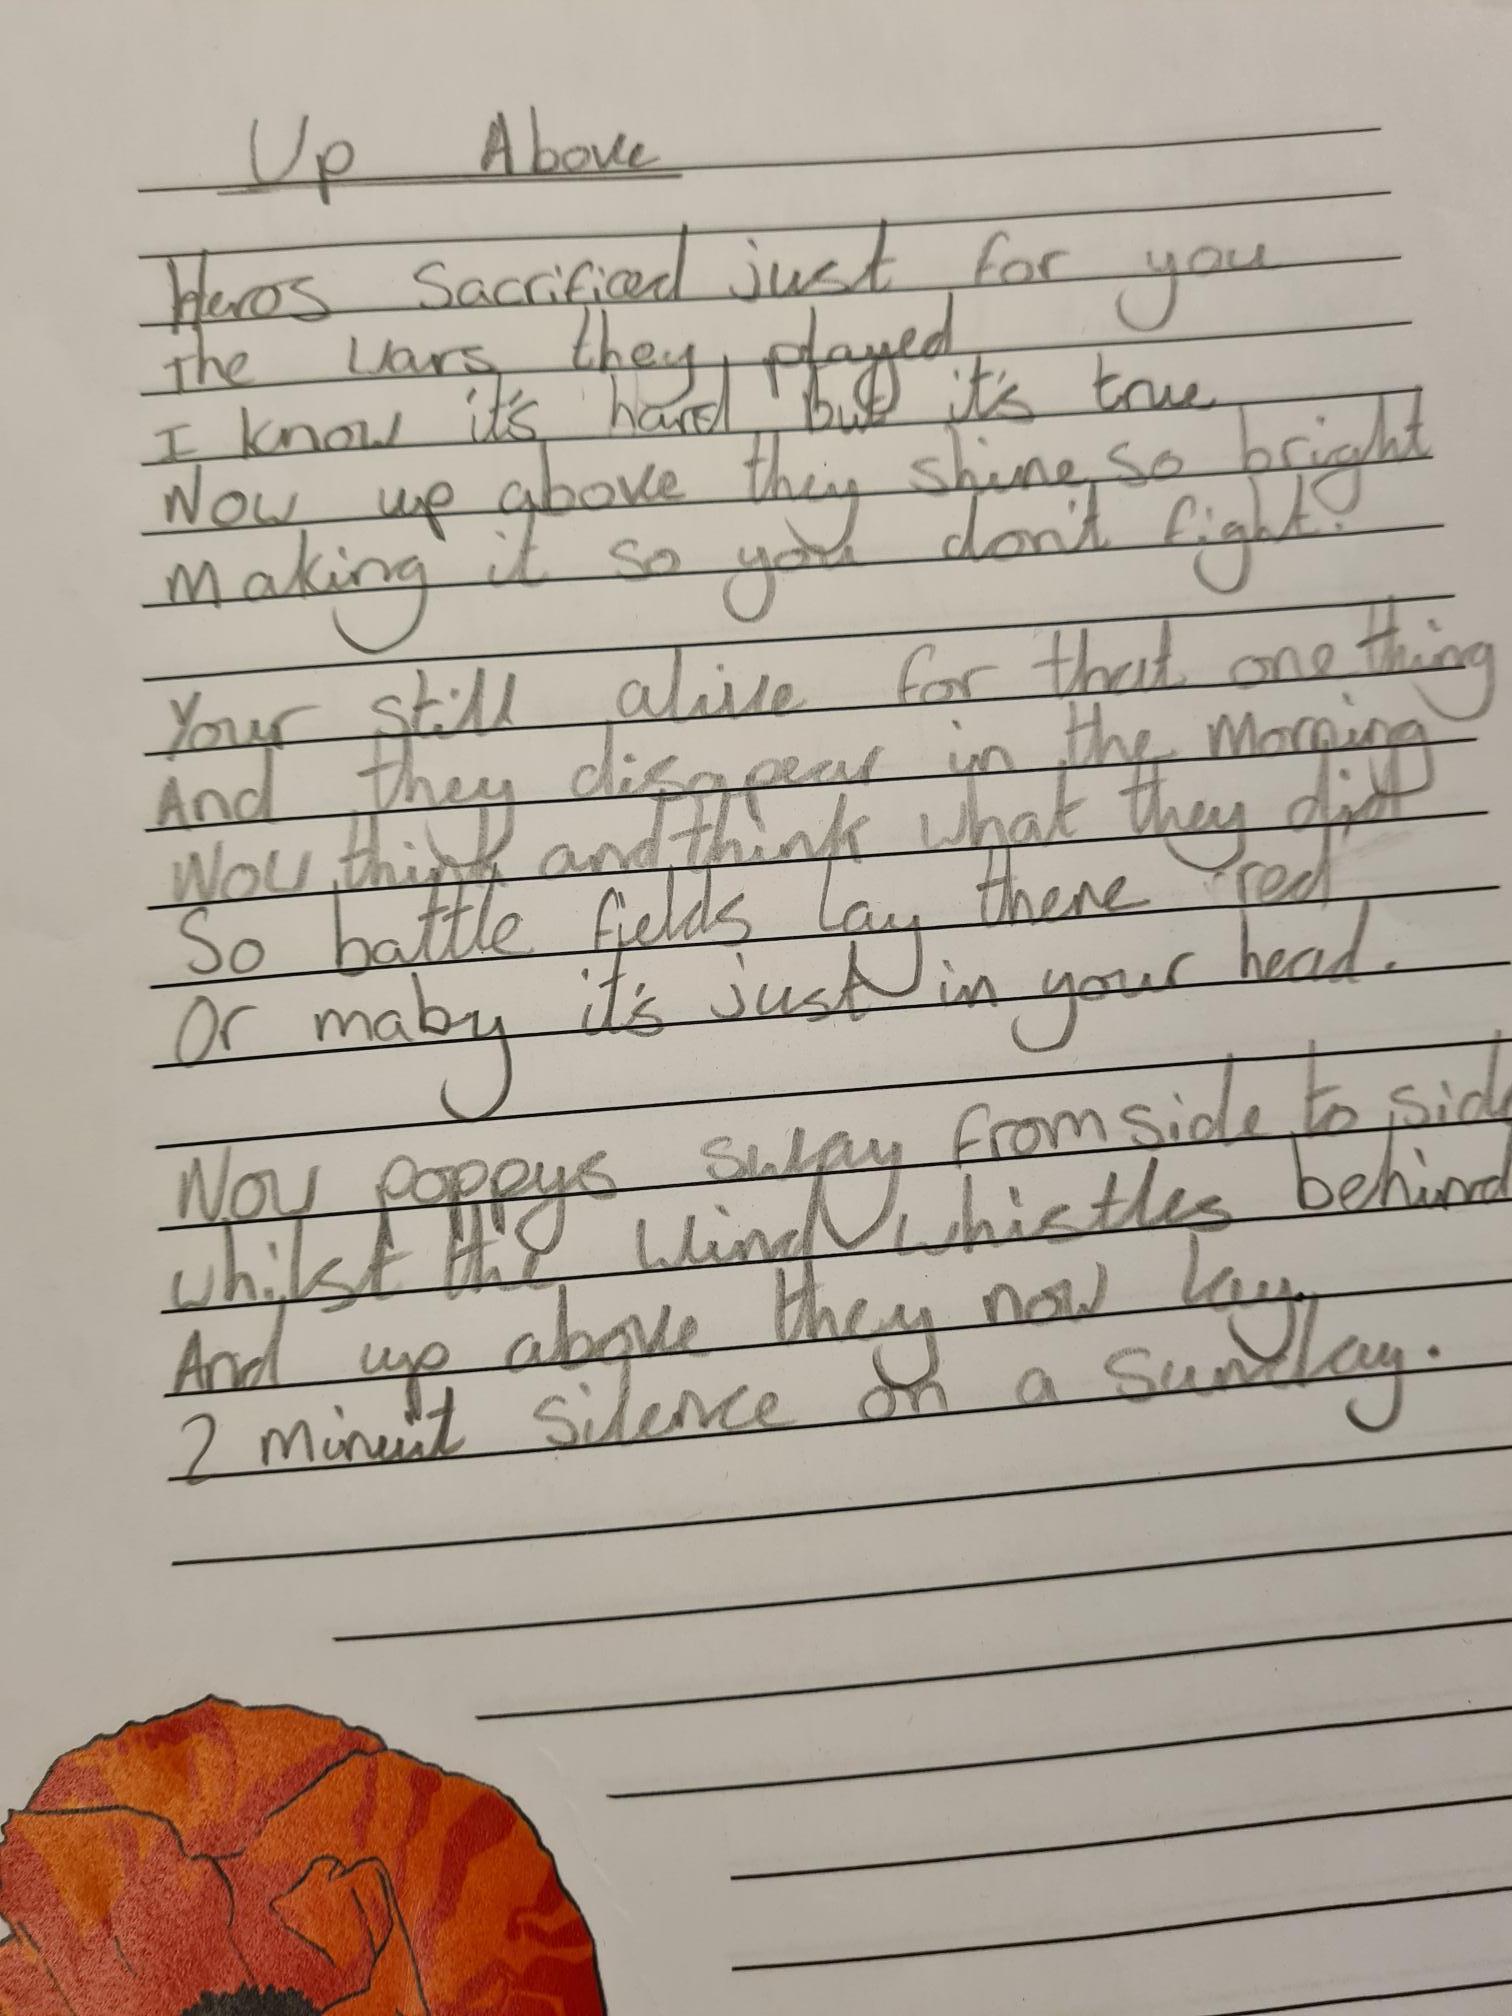 Up Above
Heros Sacrificed just for you
The wars they played
I know it's hard but it's true
Now up above they shine so bright
Making it so you don't fight.
Your still alive for that one thing
And they disapear in the morning
Now think and think what they did
So battle fields lay there red
Or maby it's just in your head.
Now poppys sway from side to side
whilst the wind whistles behind
And up above they now lay
2 minuit silence on a Sunday.